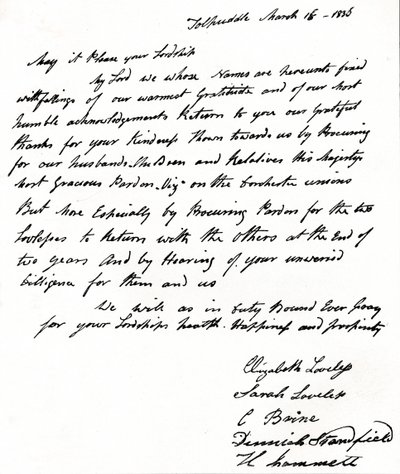 Tolpuddle March 16 - 1836
May it Please your Lordship
My Lord we whose Names are hereunto fixed
with fealings of our warmest Gratitude and of our most
humble acknowledgements Return to you our Grateful
thanks for your Kindness Shown towards us by Procuring
for our husbands Children and Relatives His Majestys
Most Gracious Pardon Viz on the Dorchester unions
But More Especially by Procuring Pardon for the two
Lovelesses to Return with the Others at the End of
two years And by Hearing of your unweried
Dilligence for them and us
We will as in Duty Bound Ever Pray
for your Lordships health Happiness and prosperity
Elizabeth Loveless
Sarah Loveless
C Brine
Standfield
H Hammett